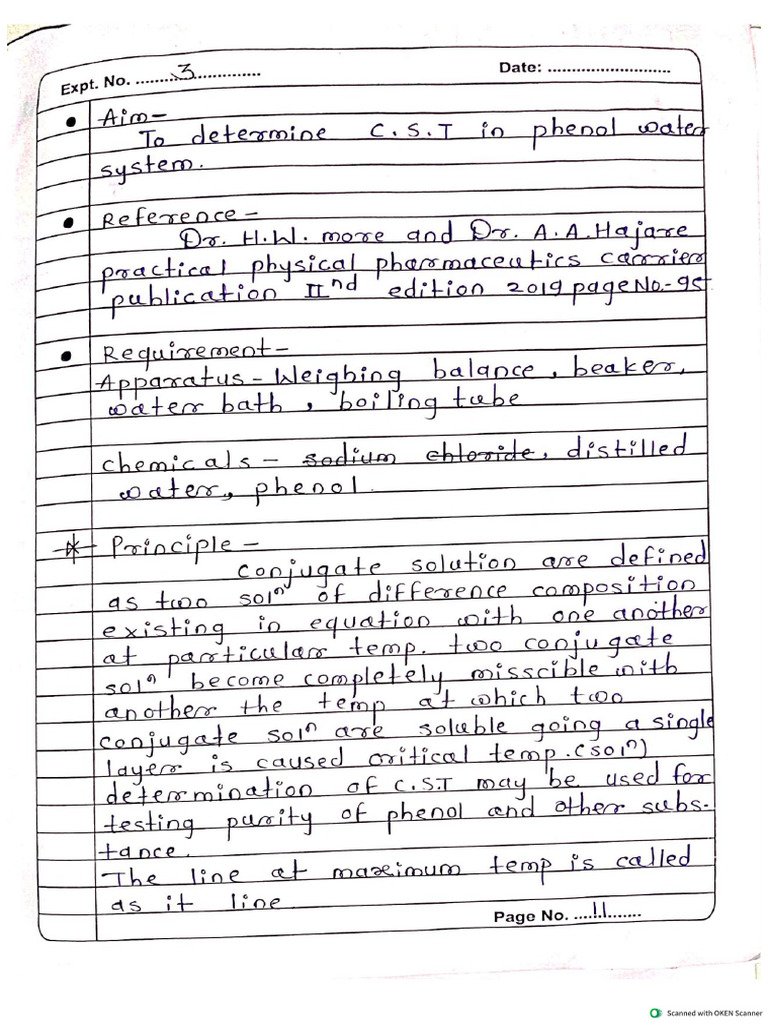 Expt. No. ......... 3 ............. Date: ..........................
• Aim-
To determine C.S.T in phenol water
system.
• Reference -
Dr. H.W. more and Dr. A.A.Hajare
practical physical pharmaceutics carrier
publication IInd edition 2019 page No.-
• Requirement-
Apparatus - Weighing balance, beaker,
water bath, boiling tube
chemicals - sodium chloride, distilled
water, phenol.
Principle -
conjugate solution are defined
as two soln of difference composition
existing in equation with one another
at particular temp. two conjugate
soln become completely misscible with
another the temp at which two
conjugate soln are soluble going a single
layer is caused critical temp. (soln)
determination of C.S.T may be used for
testing purity of phenol and other subs-
tance.
The line at maximum temp is called
as it line
Page No. ....11.......
Scanned with OKEN Scanner